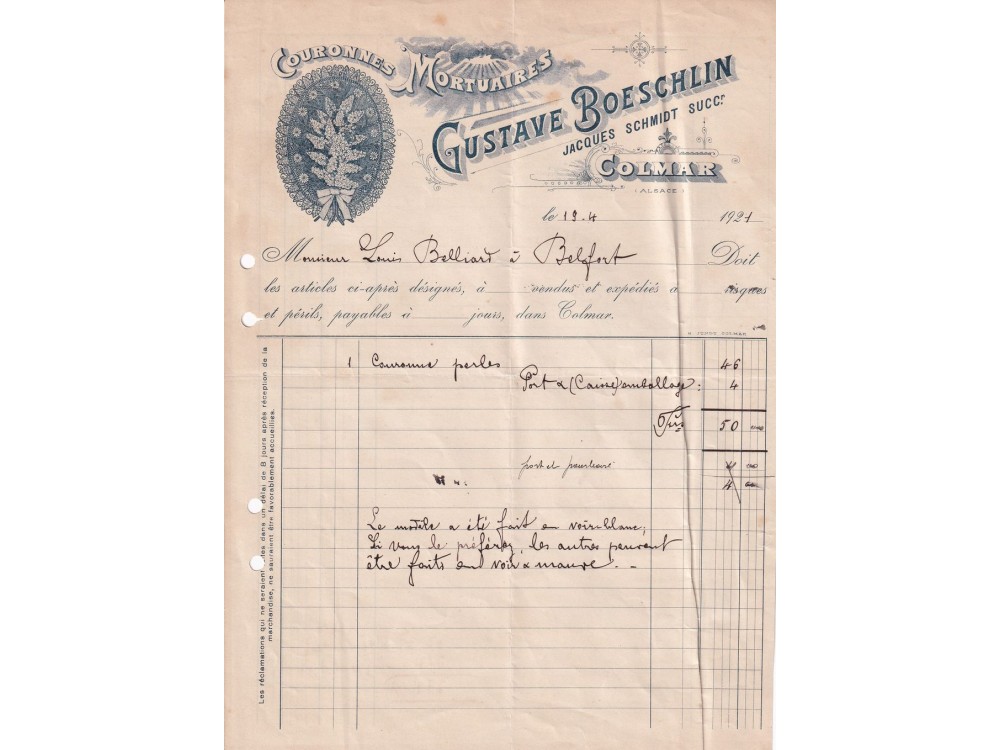 COURONNES MORTUAIRES
GUSTAVE BOESCHLIN
JACQUES SCHMIDT SUCCr
COLMAR
(ALSACE)
le 19.4 1921
Monsieur Louis Belliard à Belfort Doit
les articles ci-après désignés, à vendus et expédiés à risques
et périls, payables à jours, dans Colmar.
1 Couronne perles 46
Port & (Caisse) emballage: 4
50
port et 4
4
Le modèle a été fait en noir & blanc;
Si vous le préférez, les autres peuvent
être faits en noir & mauve.
Les réclamations qui ne seraient faites dans un délai de 8 jours après réception de la
marchandise, ne sauraient être favorablement accueillies.